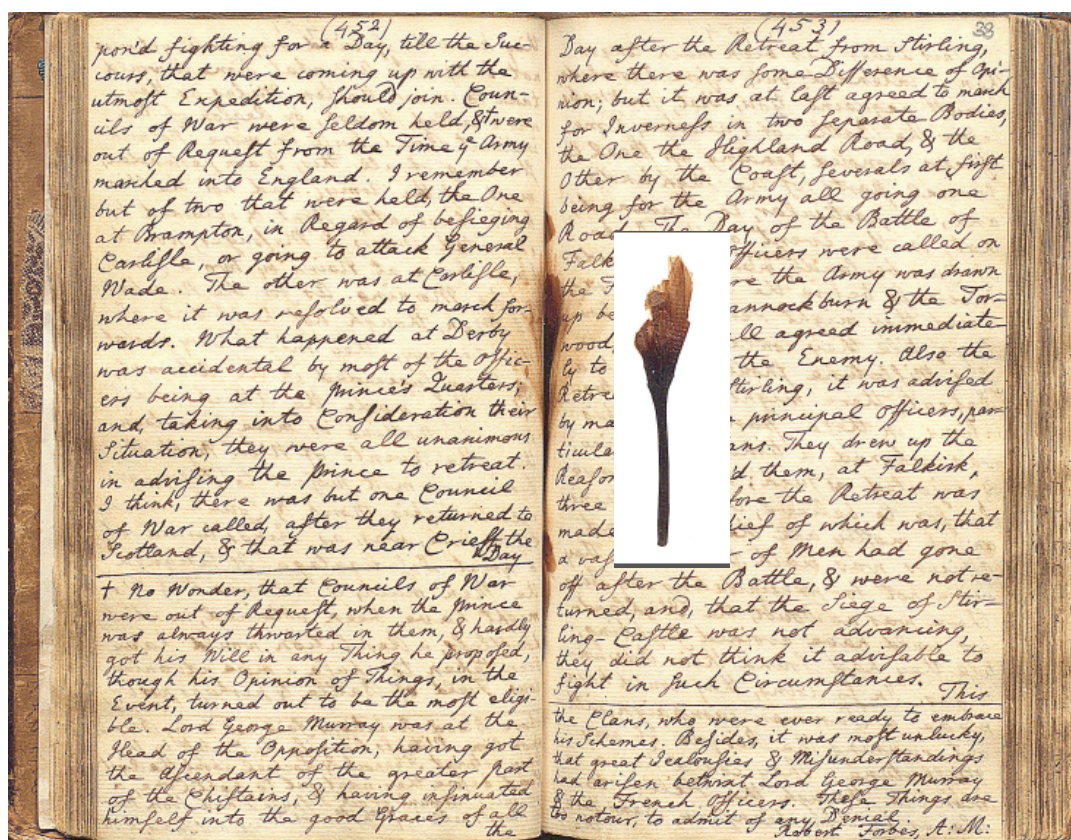 (452)
pon'd fighting for a Day, till the Suc-
cours, that were coming up with the
utmost Expedition, should join. Coun-
cils of War were seldom held, & were
out of Request from the Time ye Army
marched into England. I remember
but of two that were held, the One
at Brampton, in Regard of besieging
Carlisle, or going to attack General
Wade. The other was at Carlisle,
where it was resolved to march for-
wards. What happened at Derby
was accidental by most of the Offic-
ers being at the Prince's Quarters;
and, taking into Consideration their
Situation, they were all unanimous
in advising the Prince to retreat.
I think, there was but one Council
of War called, after they returned to
Scotland, & that was near Crieff, the
Day
† No Wonder, that Councils of War
were out of Request, when the Prince
was always thwarted in them, & hardly
got his Will in any Thing he proposed,
though his Opinion of Things, in the
Event, turned out to be the most eligi-
ble. Lord George Murray was at the
Head of the Opposition; having got
the Ascendant of the greater part
of the Chiftains, & having insinuated
himself into the good Graces of all
the
(453)
33
Day after the Retreat from Stirling,
where there was some Difference of Opi-
nion; but it was at last agreed to march
for Inverness in two separate Bodies,
the One the Highland Road, & the
Other by the Coast, severals at first
being for the Army all going one
Road. The Day of the Battle of
Falk fficers were called on
the re the Army was drawn
up be annockburn & the Tor-
wood ll agreed immediate-
ly to the Enemy. Also the
Retre Stirling, it was advised
by ma principal Officers, par-
ticula ans. They drew up the
Reason d them, at Falkirk,
three fore the Retreat was
made ief of which was, that
a vas of Men had gone
off after the Battle, & were not re-
turned, and, that the Siege of Stir-
ling-Castle was not advancing,
they did not think it advisable to
fight in such Circumstances.
This
the Clans, who were ever ready to embrace
his Schemes. Besides, it was most unlucky,
that great Jealousies & Misunderstandings
had arisen betwixt Lord George Murray
& the French Officers. These Things are
too notour, to admit of any Denial.
Robert Forbes, A: M: